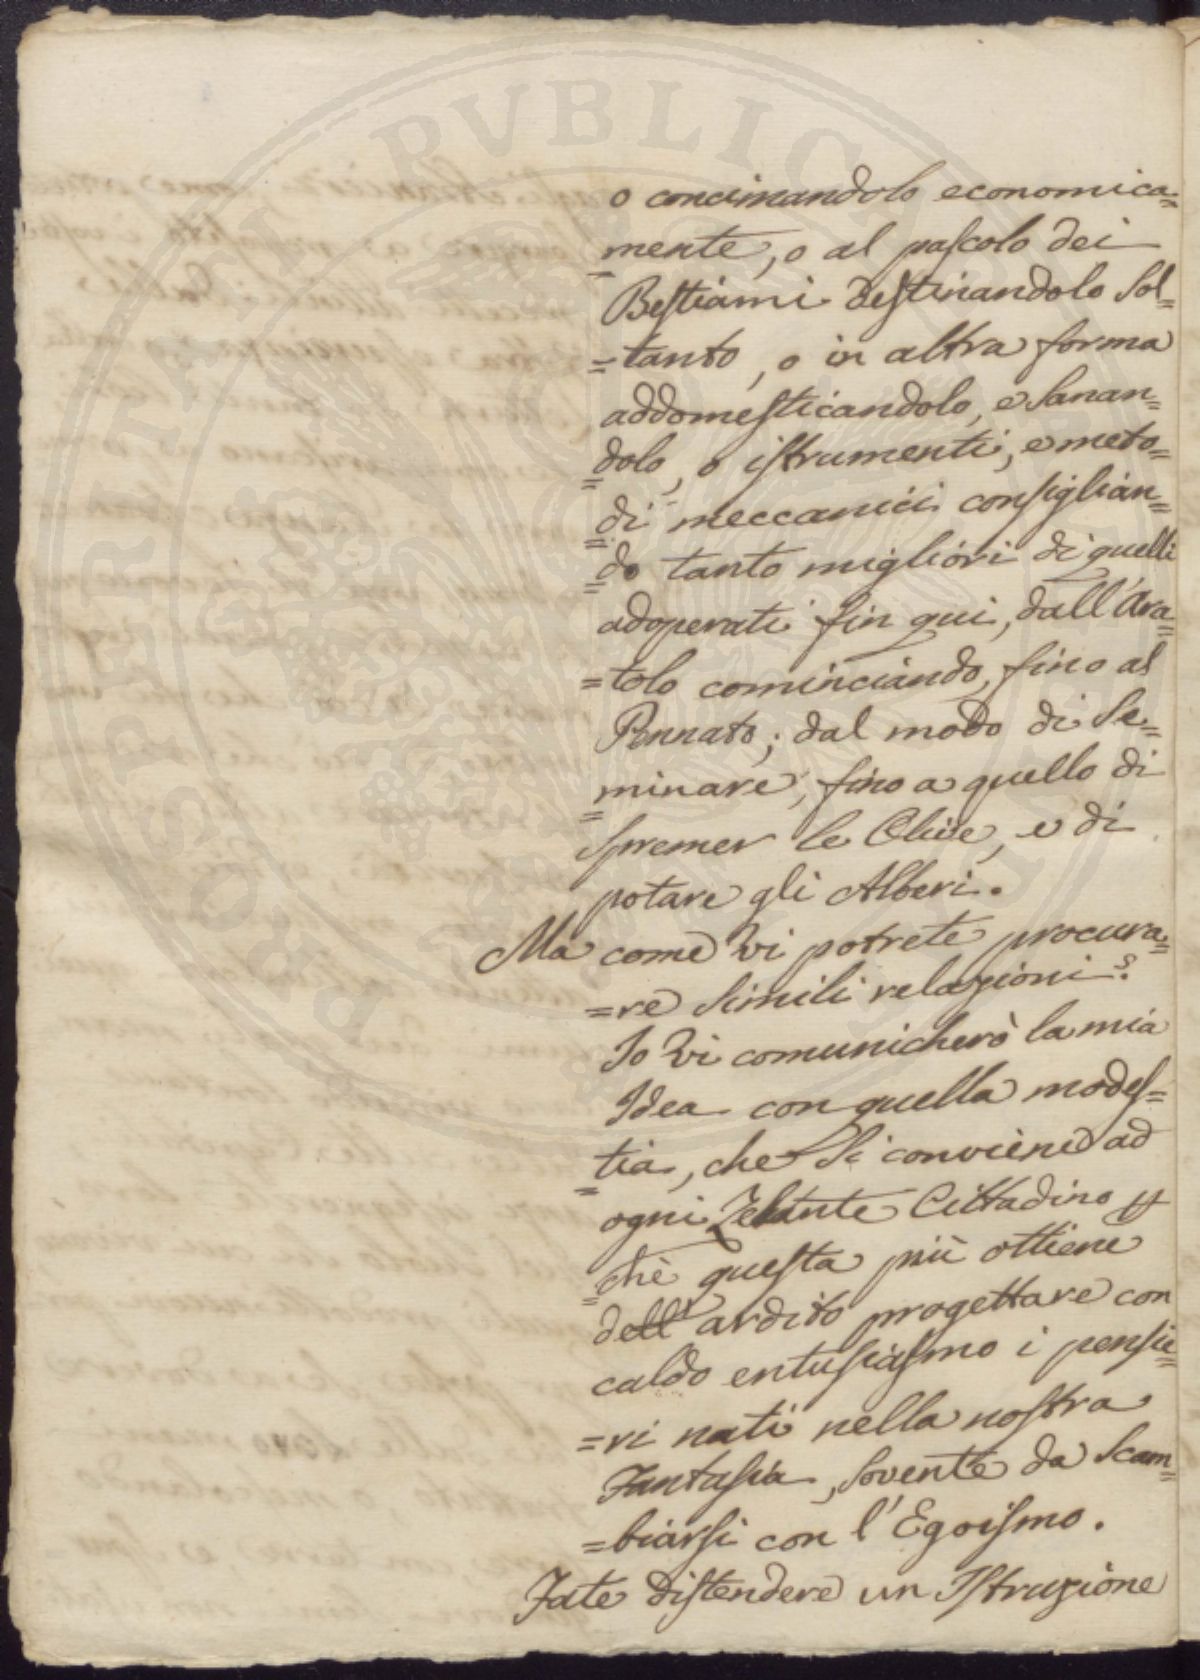 o concimandolo economica=
=mente, o al pascolo dei
Bestiami destinandolo sol=
=tanto, o in altra forma
addomesticandolo, e sanan=
=dolo, o istrumenti, e meto=
=di meccanici consiglian=
=do tanto migliori di quelli
adoperati fin qui, dall'Ara=
=tolo cominciando, fino al
Pennato; dal modo di se=
=minare, fino a quello di
spremer le Olive, e di
potare gli Alberi.
Ma come vi potrete procura=
=re simili relazioni?
Io vi comunicherò la mia
Idea con quella modes=
=tia, che si conviene ad
ogni Zelante Cittadino
=chè questa più ottiene
dell'ardito progettare con
caldo entusiasmo i pensie=
=ri nati nella nostra
Fantasia, sovente da scam=
=biarsi con l'Egoismo.
Fate distendere un Istruzione
PROSPERITATI PVBLICAE